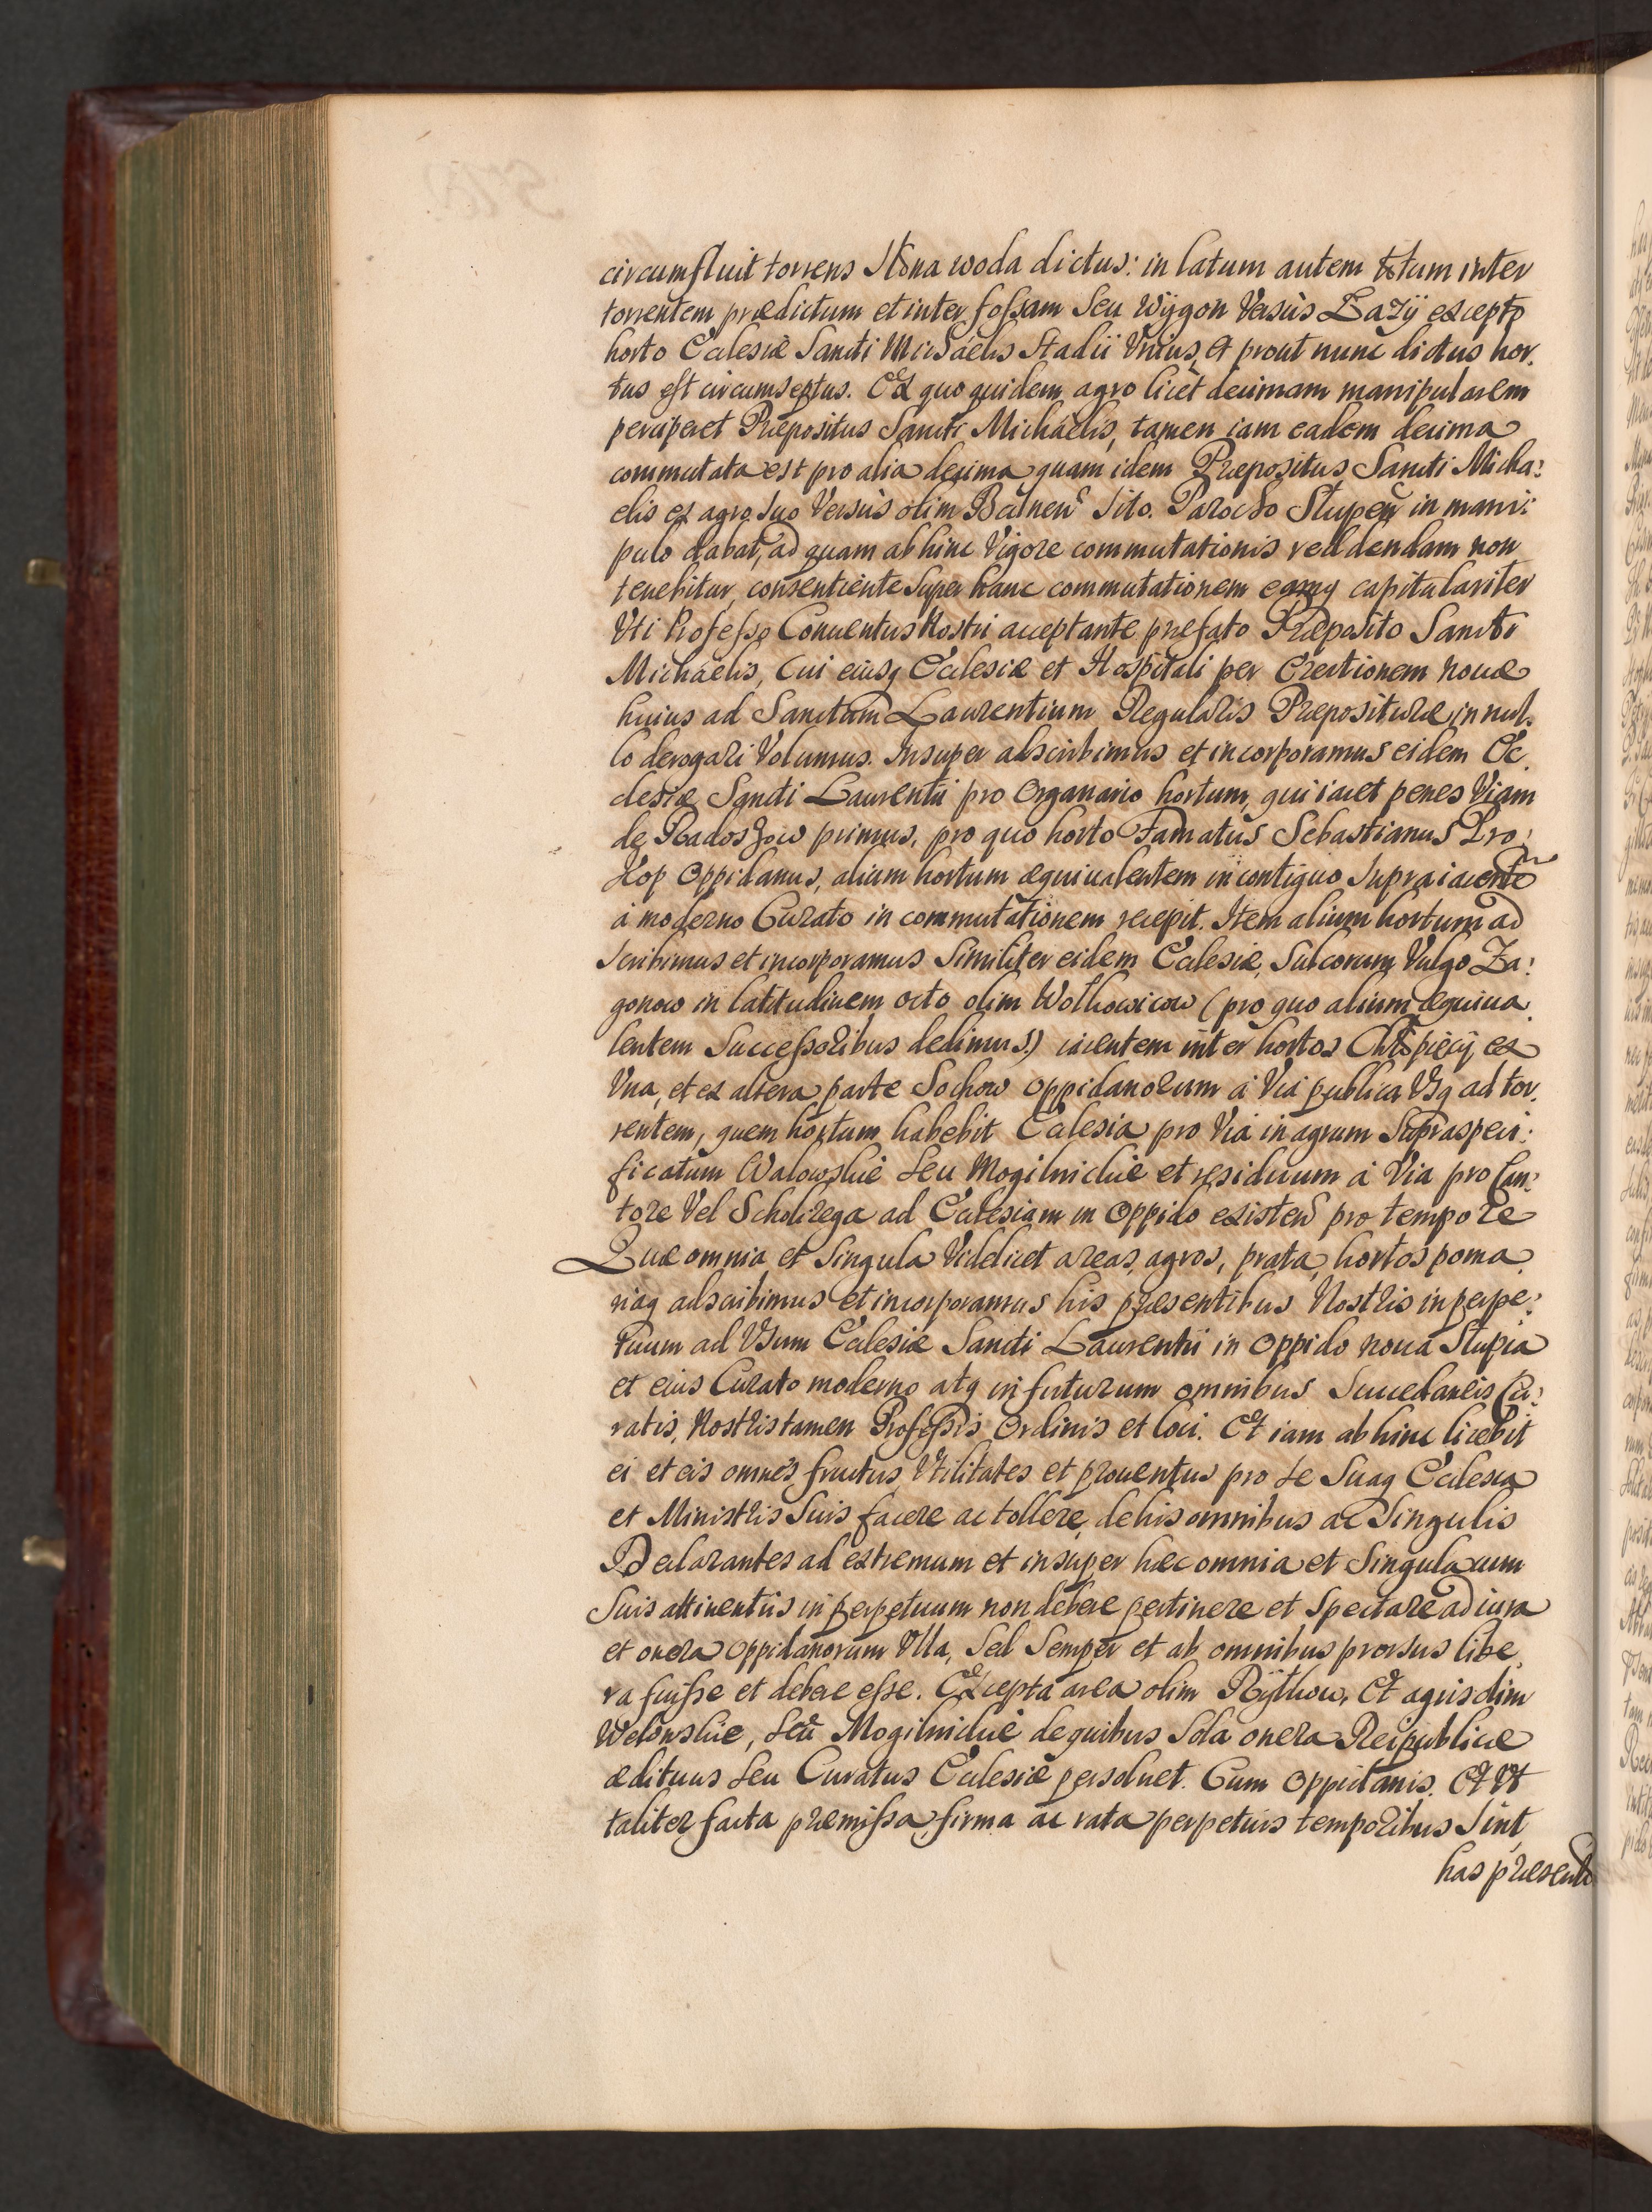 circumfluit torrens Słona woda dictus: in latum autem totum inter
torrentem prædictum et inter fossam Seu Wÿgon Versùs Łazÿ excepto
horto Ecclesiæ Sancti Michaelis Stadii Unius, et prout nunc dictus hor,
tus est circumseptus. Ex quo quidem agro licèt decimam manipularem
perciperet Præpositus Sancti Michaelis, tamen iam eadem decima
commutata est pro alia decima quam idem Præpositus Sancti Micha:
elis ex agro suo Versùs olim sito. Parocho Stupeñ in mani:
pulo dabat, ad quam abhinc Vigore commutationis reddendam non
tenebitur, consentiente Super hanc commutationem eamq capitulariter
Uti Professo Conuentus Nostri acceptante præfato Præposito Sancti
Michaelis, Cui eiusq Ecclesiæ et Hospitali per Erectionem nouæ
huius ad Sanctum Laurentium Regularis Præposituræ in nul,
lo derogari Volumus. Insuper adscribimus et incorporamus eidem Ec,
clesiæ Sancti Laurentii pro Organario hortum, qui iacet penes Viam
de Radoszow primus, pro quo horto Famatus Sebastianus Pro:
kop Oppidanus, alium hortum æquiualentem in contiguo Supraiacente
à moderno Curato in commutationem recepit. Item alium hortum ad
scribimus et incorporamus Similiter eidem Ecclesiæ, Sulcorum Vulgo Za:
gonow in latitudinem octo olim Wołkowicow (pro quo alium æquiua,
lentem Successoribus dedimus.) iacentem inter hortos Chłopiecÿ ex
Una, et ex altera parte Sochow oppidanorum à Via publica Usq ad tor,
rentem, quem hortum habebit Ecclesia pro Via in agrum Supraspeci:
ficatum Walowskie Seu Mogilnickie et residuum à Via pro Can:
tore Vel Scholirega ad Ecclesiam in Oppido existeñ pro tempore
Quæ omnia et Singula Videlicet areas, agros, prata, hortos poma,
riaq adscribimus et incorporamus his præsentibus Nostris in perpe:
tuum ad Usum Ecclesiæ Sancti Laurentii in Oppido noua Slupia
et eius Curato moderno atq in futurum omnibus Succedaneis Cu:
ratis, Nostris tamen Professis Ordinis et loci. Et iam abhinc licebit
ei et eis omnes fructus, Utilitates et prouentus pro se Suaq Ecclesia
et Ministris Suis facere ac tollere, de his omnibus ac Singulis
Declarantes ad extremum et insuper hæc omnia et Singula cum
Suis attinentiis in perpetuum non debere pertinere et Spectare ad iura
et onera Oppidanorum Ulla, Sed Semper et ab omnibus prorsus libe,
ra fuisse et debere esse. Excepta area olim Rÿtkow, Et agris olim
Welonskie, Seu Mogilnickie de quibus Sola onera Reipublicæ
ædituus Seu Curatus Ecclesiæ persoluet. Cum Oppidanis. Et Ut
taliter facta præmissa, firma ac rata perpetuis temporibus Sint,
has præsentes